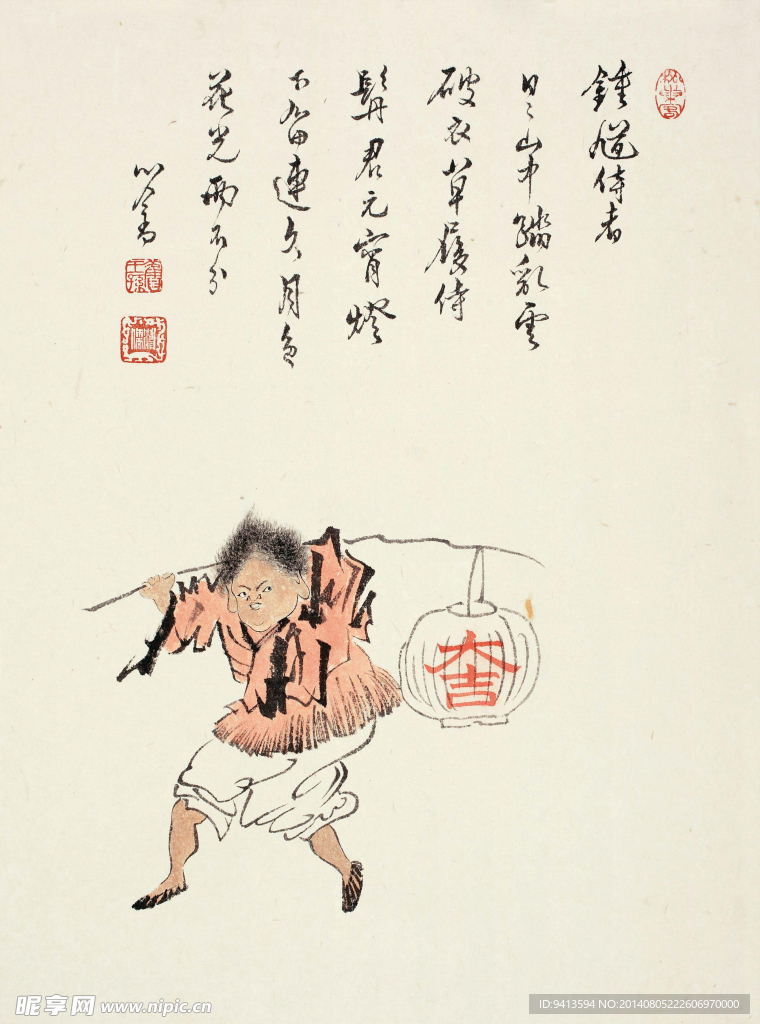 松巢客
鍾馗侍者
日〻山中踏亂雲
破衣草履侍
髯君元宵燈
市留連久月色
花光兩不分
心畬
舊王孫
溥儒
大吉
昵享网 www.nipic.cn
ID:9413594 NO:20140805222606970000